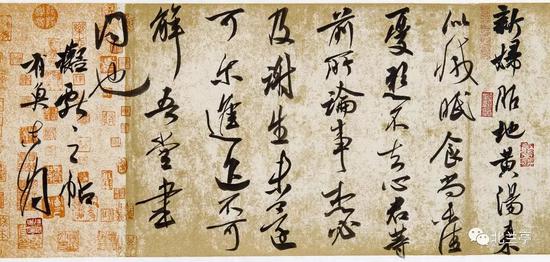 新婦服地黄湯来
似減眠食尚未佳
憂懸不去心君等
前所論事想必
及謝生未還
可尔進退不可
解吾當書
問也
獻之帖
北兰亭